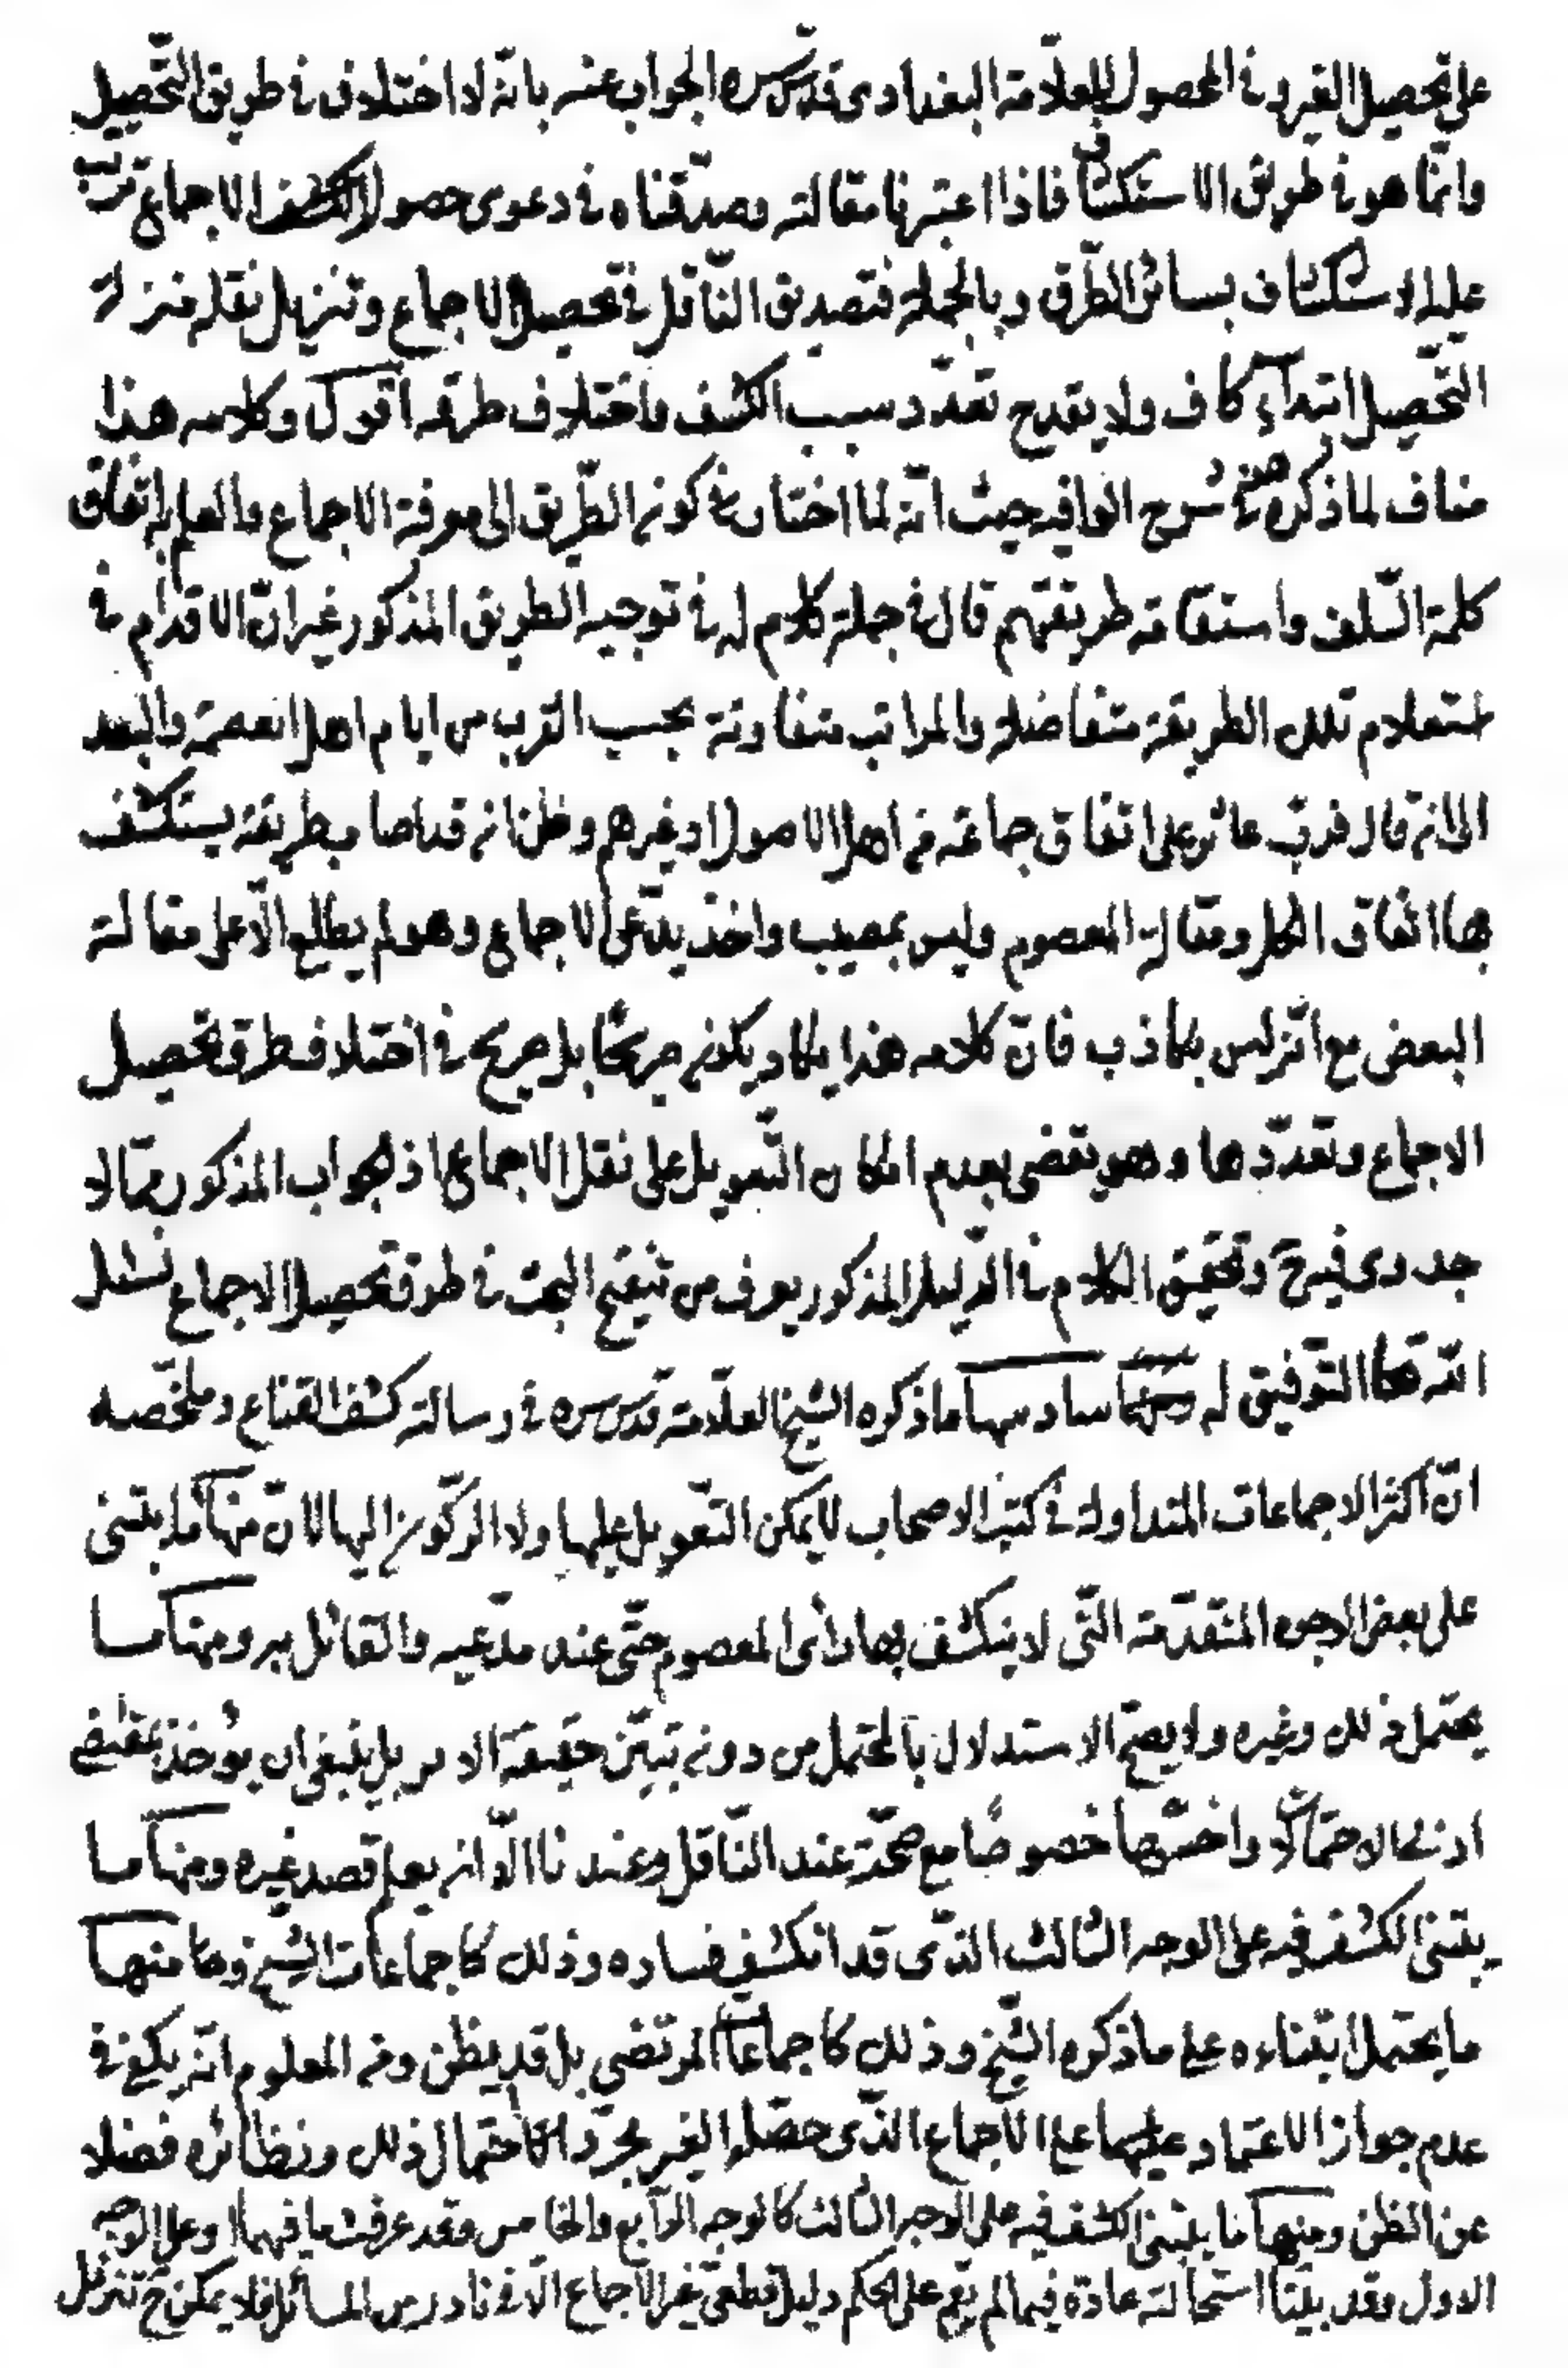 على تحصيل الغير و في المحصول للعلامة البغدادي قدس سره الجواب عنه بانّه لا اختلاف في طريق التّحصيل
وانّما هو في طريق الاستكشاف فاذا اعتبرنا مقالته وصدّقناه في دعوى حصول الكشف الاجماع ترتّب
عليه الاستكشاف بسائر الطّرق وبالجملة فتصديق النّاقل في تحصيل الاجماع وتنزيل نقله منزلة
التّحصيل ابتداء كاف ولا يقدح تعدّد سبب الكشف واختلاف طرقه اقول وكلامه هذا
مناف لما ذكره في شرح الوافيه حيث انّه لما اختار في كونه الطّريق الى معرفة الاجماع والعلم به اتفاق
كلمة السّلف واستقامة طريقتهم قال في جملة كلام له في توجيه الطريق المذكور غير انّ الاقدام في
استعلام تلك الطريقة متفاضلة والمراتب متفاوتة بحسب القرب من ايام اهل العصمة والبعد
الى انه قال فربّ عاثر على اتفاق جماعة من اهل الاصول او غيرهم وظن انه قد اصاب طريقة يستكشف
بها اتّفاق الكل ومقالة المعصوم وليس بمصيب واخذ يدّعى الاجماع وهو لم يطلع الّا على مقالة
البعض مع انّه ليس بكاذب فانّ كلامه هذا يكاد يكون صريحًا بل صريح في اختلاف طرق تحصيل
الاجماع وتعدّدها وهو يقضى بعدم امكان التّعويل على نقل الاجماع اذ الجواب المذكور ممّا لا
جدوى فيه ح وتحقيق الكلام في الدّليل المذكور يعرف من تنقيح البحث في طرق تحصيل الاجماع نسئل
اللّه تعالى التّوفيق له سادسها ما ذكره الشيخ العلّامة قدس سره في رسالة كشف القناع وملخّصه
انّ اكثر الاجماعات المتداولة في كتب الاصحاب لا يمكن التّعويل عليها ولا الركّون اليها لانّ منها ما يبتنى
على بعض الوجوه المتقدّمة الّتى لا ينكشف بها رأى المعصوم حتّى عند مدّعيه والقائل به ومنها ما
يحتمل ذلك وغيره ولا يصحّ الاستدلال بالمحتمل من دون تبيّن حقيقة الامر بل ينبغى ان يؤخذ بمقتضى
ادنى الاحتمالات واخسّها خصوصًا مع صحّته عند النّاقل وعندنا الّا انه يعلم قصد غيره ومنها ما
يبتنى الكشف فيه على الوجه الثالث الّذى قد انكشف فساده وذلك كاجماعات الشيخ وها منها
ما يحتمل ابتناءه على ما ذكره الشّيخ وذلك كاجماعات المرتضى بل قد يظن ومن المعلوم انّه يكفى في
عدم جواز الاعتماد عليها على الاجماع الّذى حصّله الغير مجرّد احتمال ذلك ونظائره فضلا
عن الظن ومنها ما يبتنى الكشف فيه على الوجه الثالث كالوجه الرّابع والخامس وقد عرفت ما فيهما او على الوجه
الاول وقد بيّنّا استحالته عادة فيما لم يقم على الحكم دليل قطعىّ غير الاجماع الّا في نادر من المسائل فلا يمكن ح تنزيل